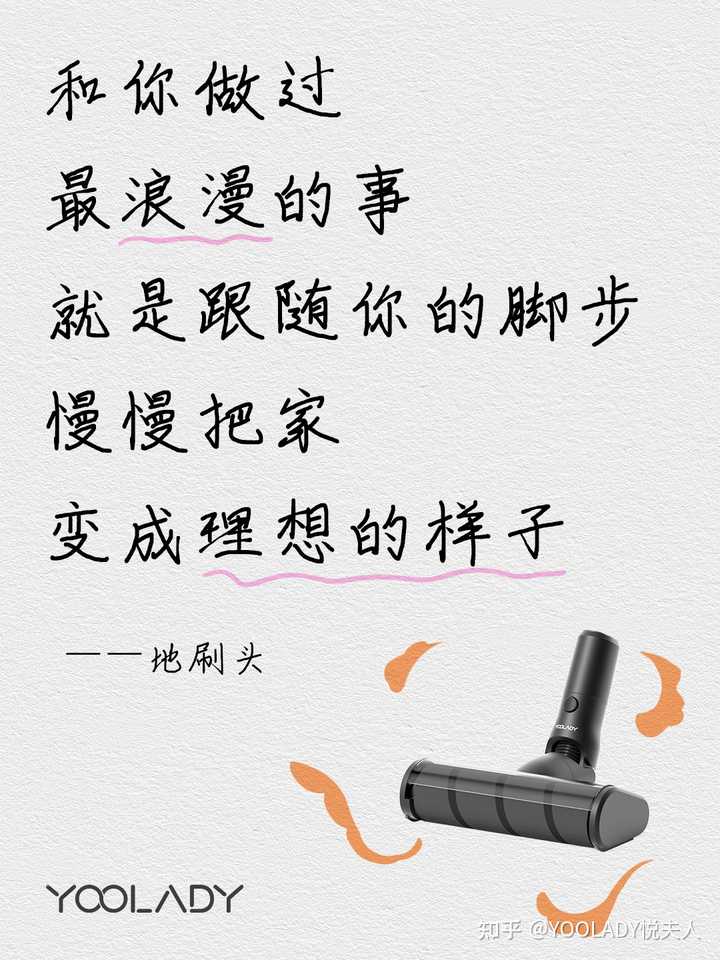 和你做过
最浪漫的事
就是跟随你的脚步
慢慢把家
变成理想的样子
——地刷头
YOOLADY
YOOLADY
知乎 @YOOLADY悦夫人